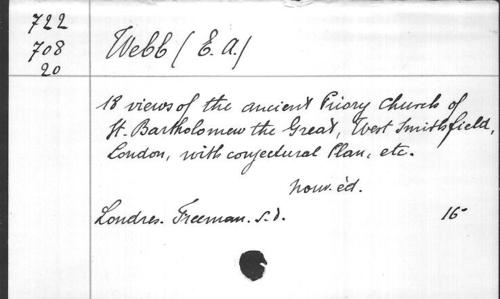 722
708
20
Webb (E. A.)
18 views of the ancient Priory Church of
St. Bartholomew the Great, West Smithfield,
London, with conjectural Plan, etc.
nouv. éd.
Londres. Freeman. s.d. 16-